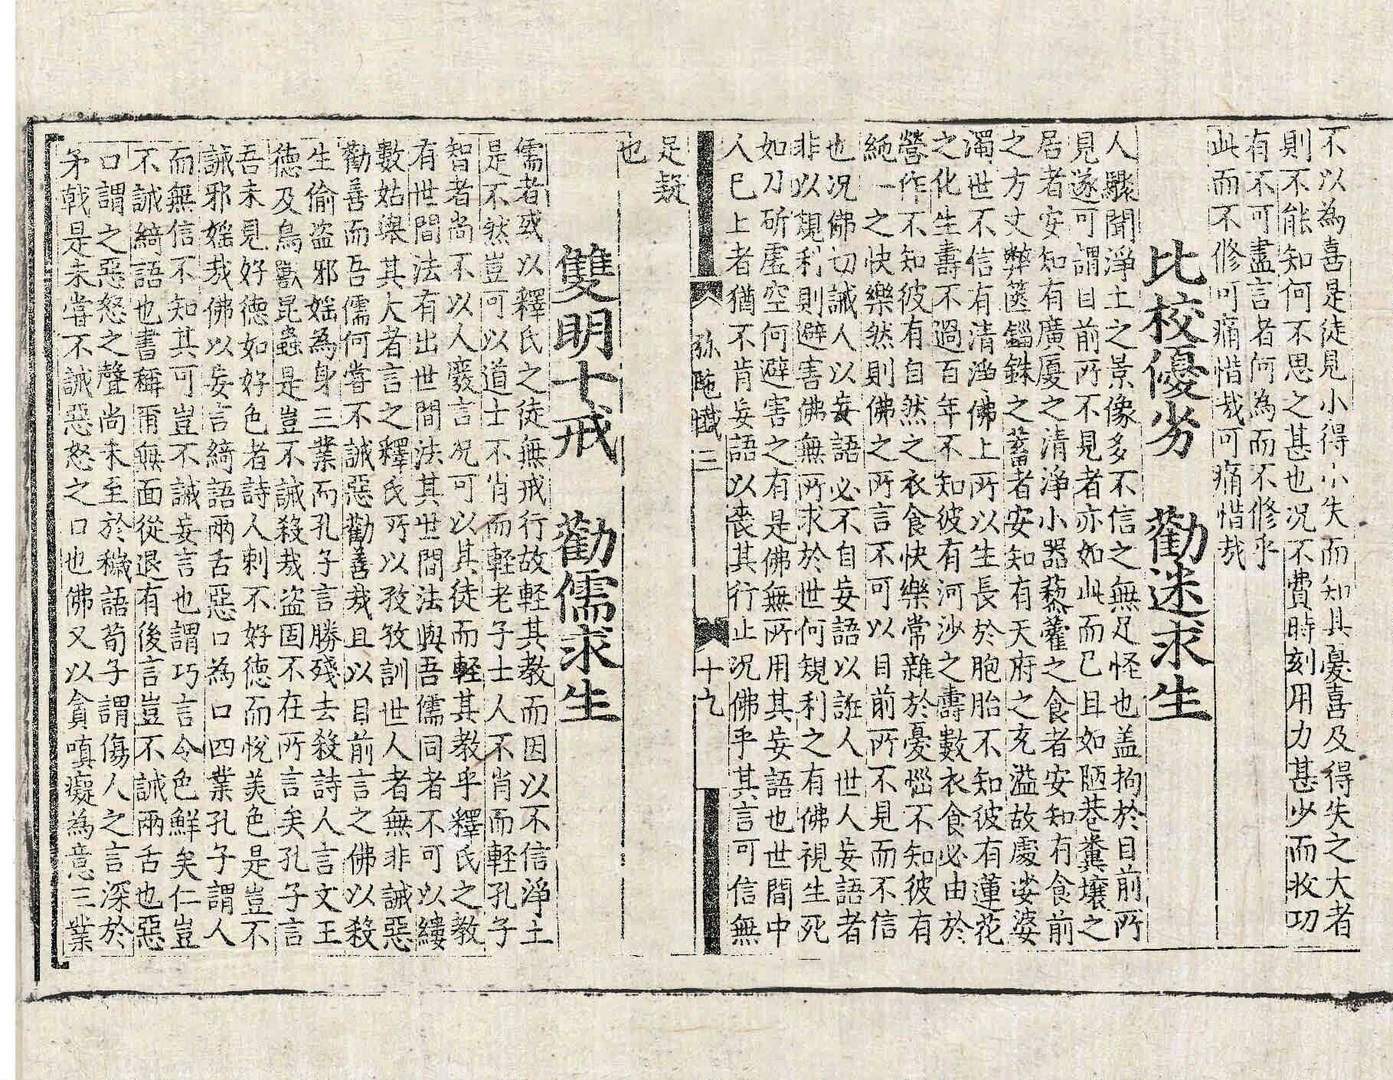 不以為喜是徒見小得小失而知其憂喜及得失之大者
則不能知何不思之甚也况不費時刻用力甚少而收功
有不可盡言者何為而不修乎
此而不修可痛惜哉可痛惜哉
比校優劣 勸迷求生
人驟聞淨土之景像多不信之無足怪也盖拘於目前所
見遂可謂目前所不見者亦如此而已且如陋巷糞壤之
居者安知有廣厦之清淨小器藜藿之食者安知有食前
之方丈弊篋錙銖之蓄者安知有天府之充溢故處娑婆
濁世不信有清涵佛上所以生長於胞胎不知彼有蓮花
之化生壽不過百年不知彼有河沙之壽數衣食必由於
營作不知彼有自然之衣食快樂常雜於憂惱不知彼有
絕一之快樂然則佛之所言不可以目前所不見而不信
也况佛切誡人以妄語必不自妄語以誑人世人妄語者
非以規利則避害佛無所求於世何規利之有佛視生死
如刀斫虛空何避害之有是佛無所用其妄語也世間中
人已上者猶不肯妄語以喪其行止况佛乎其言可信無
彌陁懺三 十九
足疑
也
雙明十戒 勸儒求生
儒者或以釋氏之徒無戒行故輕其教而因以不信淨土
是不然豈可以道士不肖而輕老子士人不肖而輕孔子
智者尚不以人廢言况可以其徒而輕其教乎釋氏之教
有世間法有出世間法其世間法與吾儒同者不可以縷
數姑舉其大者言之釋氏所以孜孜訓世人者無非誡惡
勸善而吾儒何嘗不誡惡勸善哉且以目前言之佛以殺
生偷盜邪婬為身三業而孔子言勝殘去殺詩人言文王
德及鳥獸昆蟲是豈不誡殺哉盜固不在所言矣孔子言
吾未見好德如好色者詩人刺不好德而悅美色是豈不
誡邪婬哉佛以妄言綺語兩舌惡口為口四業孔子謂人
而無信不知其可豈不誡妄言也謂巧言令色鮮矣仁豈
不誡綺語也書稱爾無面從退有後言豈不誡兩舌也惡
口謂之惡怒之聲尚未至於穢語荀子謂傷人之言深於
矛戟是未嘗不誡惡怒之口也佛又以貪嗔癡為意三業